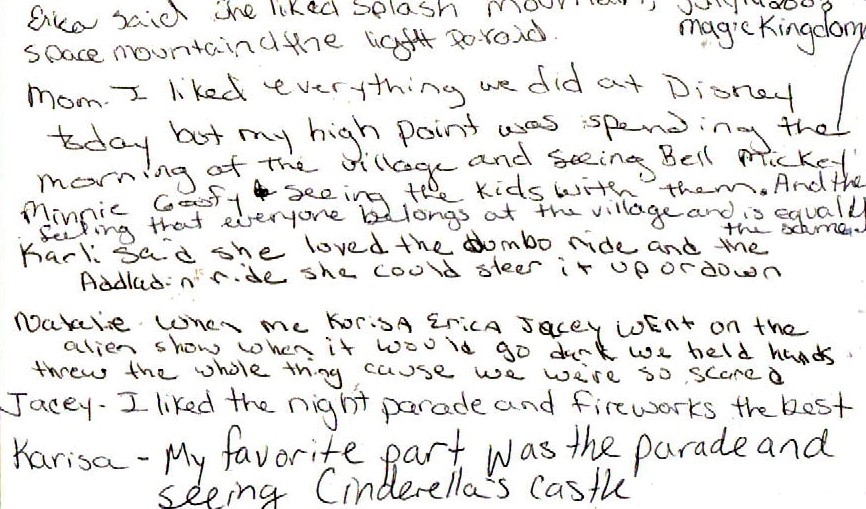 Erica said she liked Splash Mountain,
magic Kingdom
space mountain & the light paroid.
Mom. I liked everything we did at Disney
today but my high point was spending the
morning at the village and seeing Bell Mickey
Minnie Goofy & seeing the kids with them. And the
feeling that everyone belongs at the village and is equal &
the same.
Karli said she loved the dumbo ride and the
Addladin ride she could steer it up or down
Natalie. When me Karisa Erica Jacey went on the
alien show when it would go dark we held hands
threw the whole thing cause we were so scared
Jacey - I liked the night parade and fireworks the best
Karisa - My favorite part was the parade and
seeing Cinderella's castle